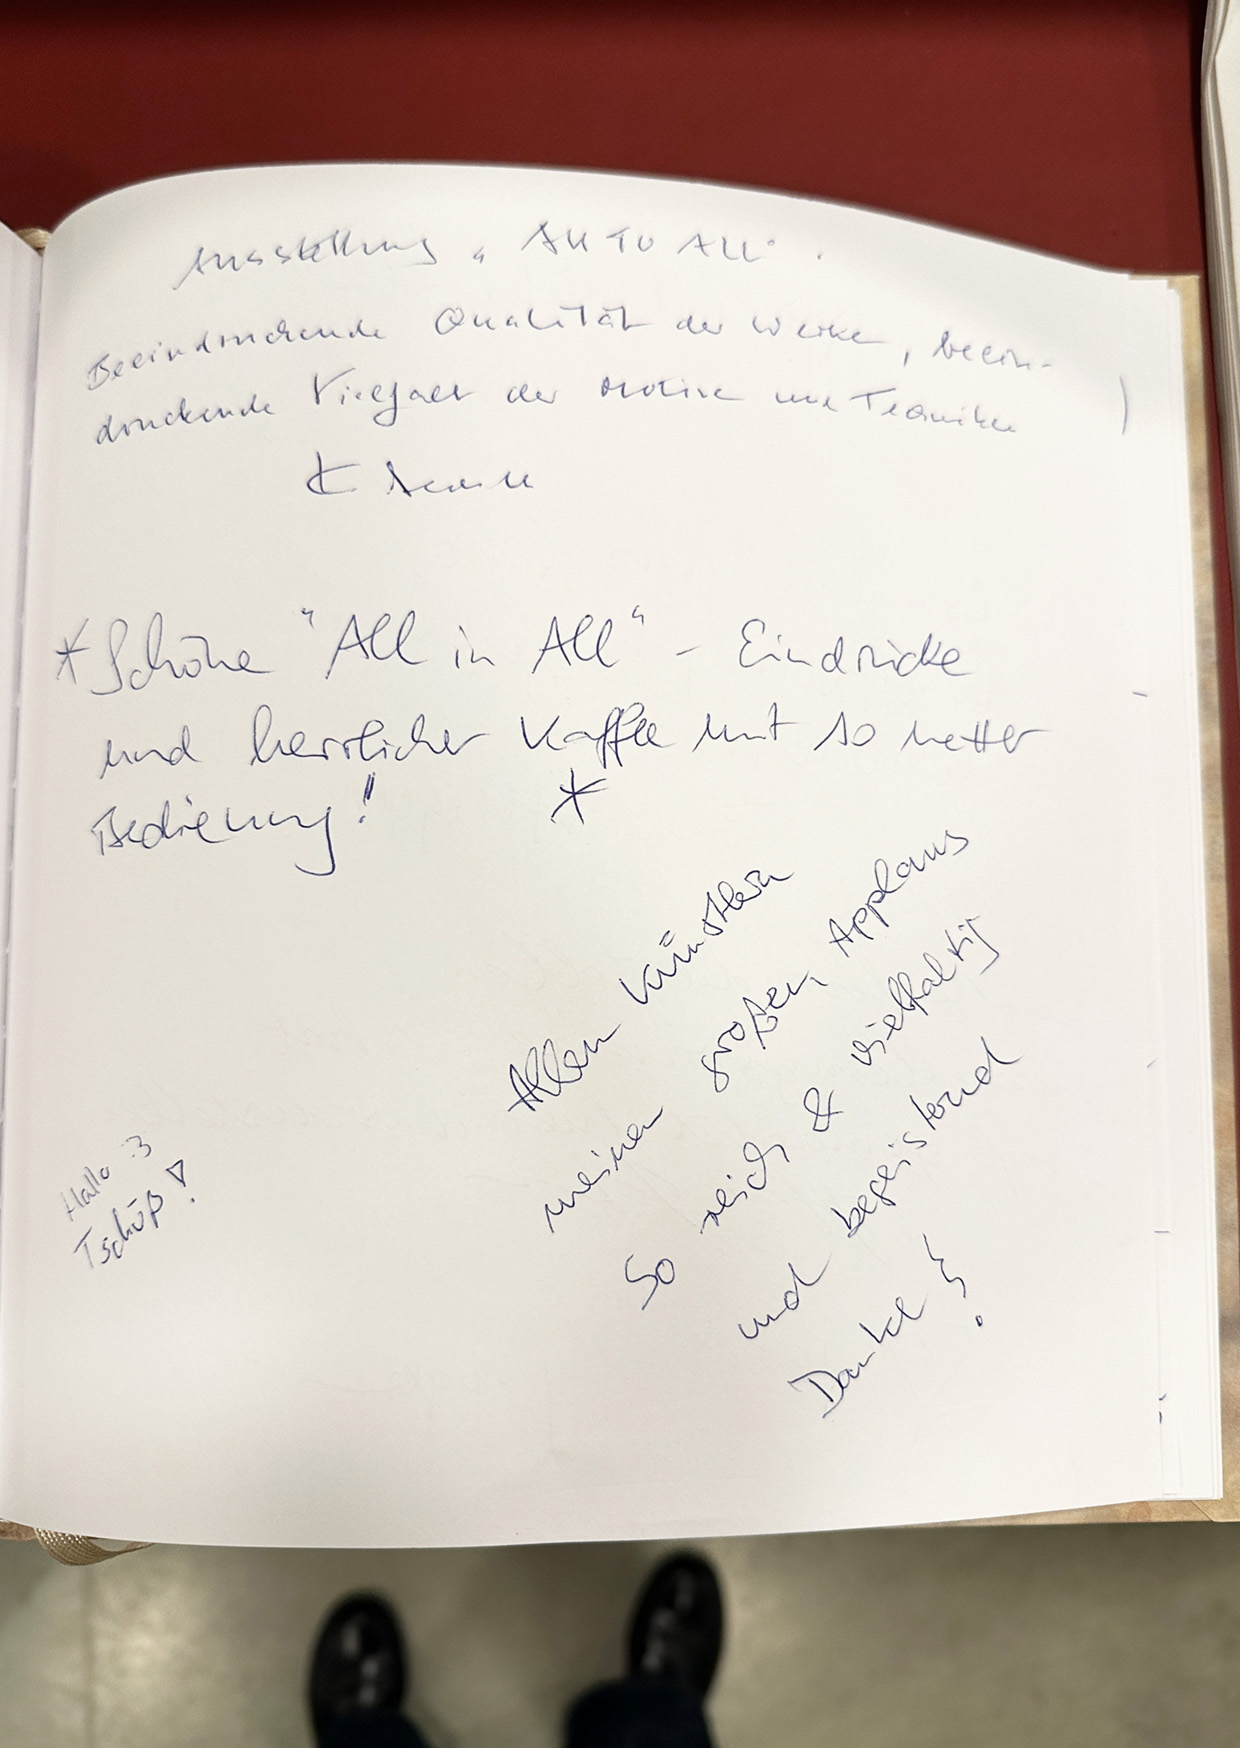 Ausstellung „All TO ALL".
Beeindruckende Qualität der Werke, beein-
druckende Vielfalt der Motive und Techniken
*Schöne "All in All" - Eindrücke
und herrlicher Kaffee mit so netter
Bedienung! *
Allen Künstlern
meinen großen Applaus
So reich & vielfaltig
und begeisternd
Danke!
Hallo :3
Tschüß!